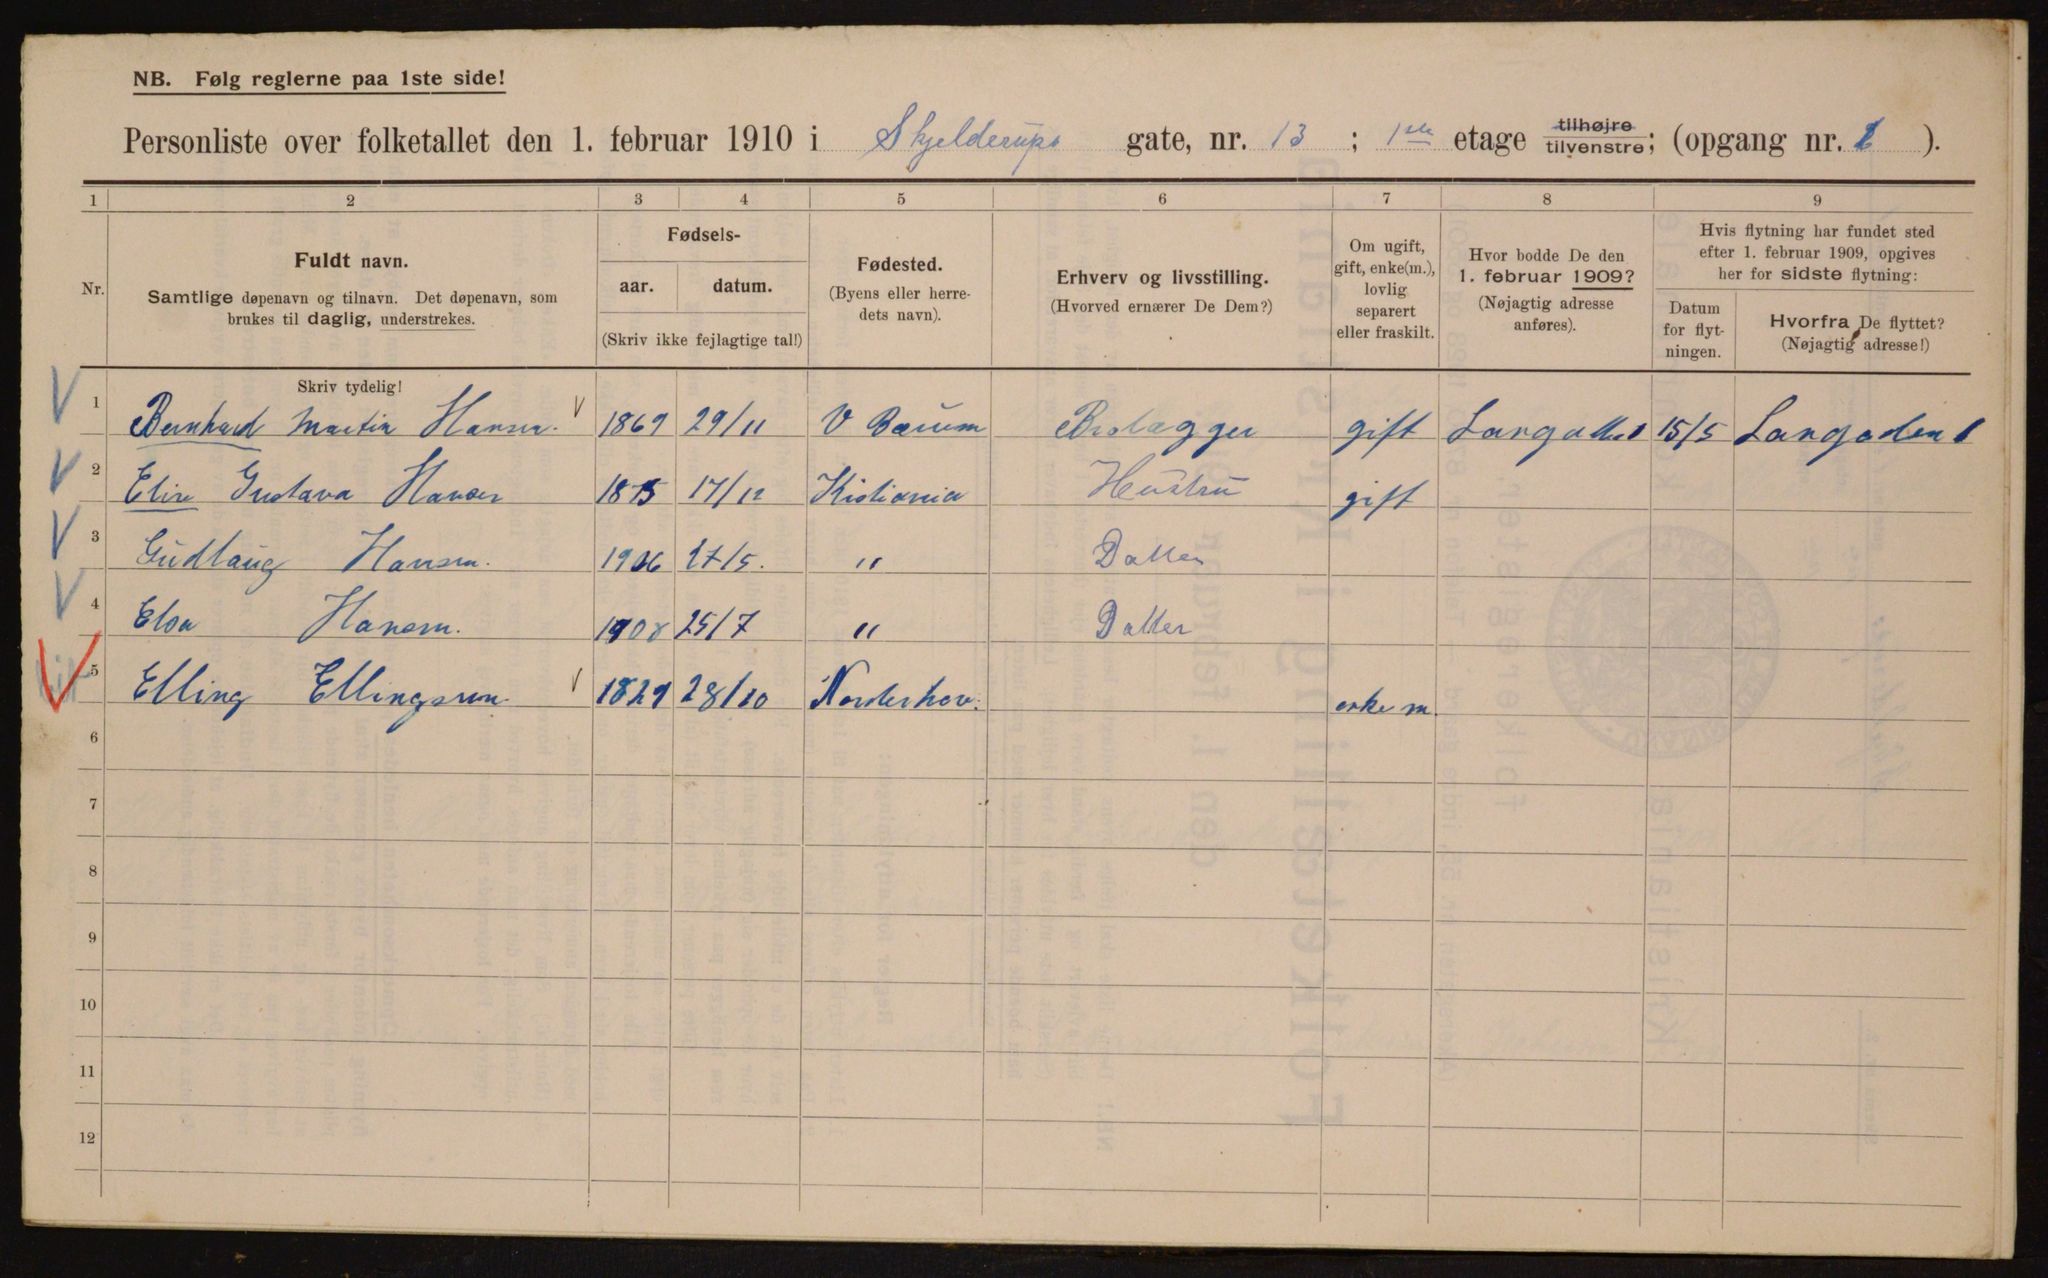 NB. Følg reglerne paa 1ste side!
Personliste over folketallet den 1. februar 1910 i Skjelderups gate, nr. 13 ; 1ste etage tilhøjre tilvenstre; (opgang nr. ).
1 2 3 4 5 6 7 8 9
Nr.
Fuldt navn.
Samtlige døpenavn og tilnavn. Det døpenavn, som
brukes til daglig, understrekes.
Fødsels-
aar. datum.
(Skriv ikke fejlagtige tal!)
Fødested.
(Byens eller herre-
dets navn).
Erhverv og livsstilling.
(Hvorved ernærer De Dem?)
Om ugift,
gift, enke(m.),
lovlig
separert
eller fraskilt.
Hvor bodde De den
1. februar 1909?
(Nøjagtig adresse
anføres).
Hvis flytning har fundet sted
efter 1. februar 1909, opgives
her for sidste flytning:
Datum
for flyt-
ningen.
Hvorfra De flyttet?
(Nøjagtig adresse!)
Skriv tydelig!
1 Bernhard Martin Hansen. 1869 29/11 V Bærum Brolægger gift 15/5
2 Elise Gustava Hansen 1875 17/12 Kistiania Hustru gift
3 Gudlaug Hansen. 1906 27/5. " Datter
4 Elsa Hansen. 1908 25/7 " Datter
5 Elling Ellingsen 1829 28/10 Norderhov. enke m.
6
7
8
9
10
11
12